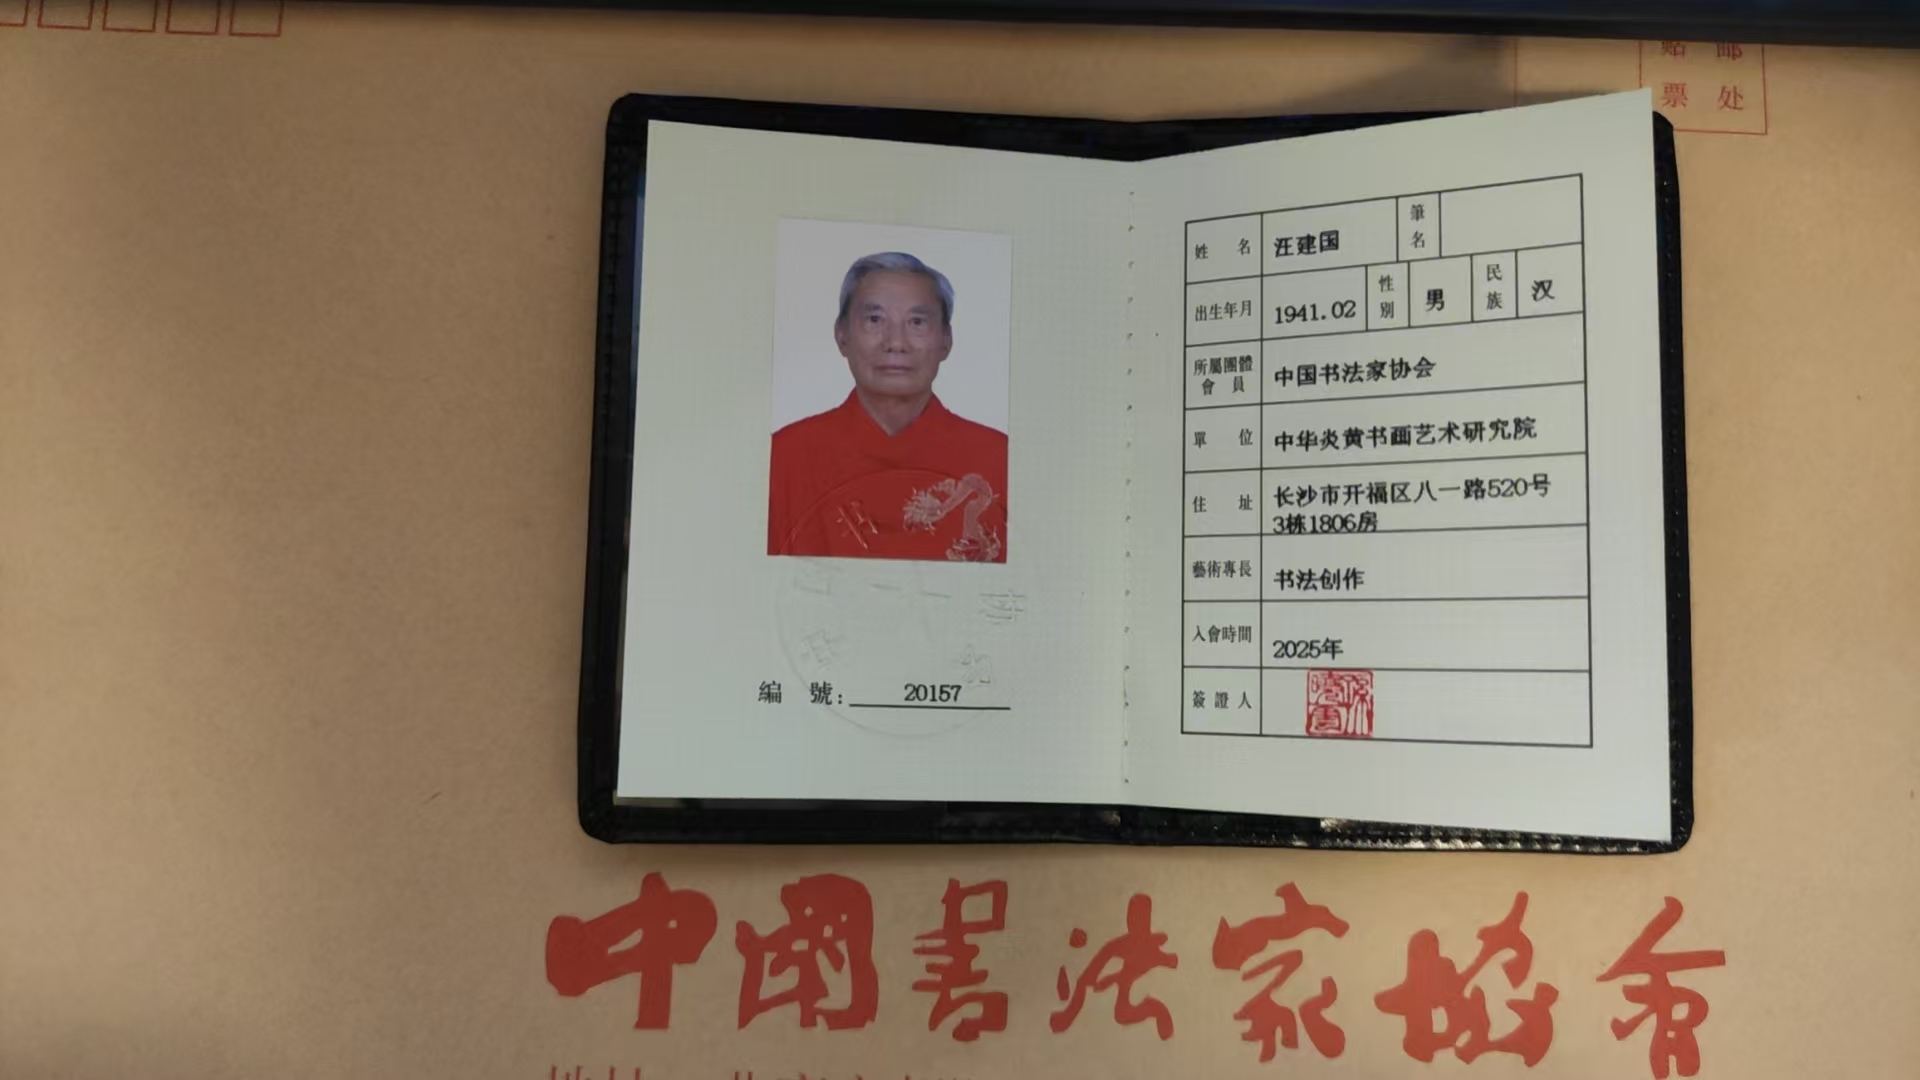 贴 邮
票 处
姓 名 汪建国 筆名
出生年月 1941.02 性別 男 民族 汉
所屬團體會員 中国书法家协会
單 位 中华炎黄书画艺术研究院
住 址 长沙市开福区八一路520号
3栋1806房
藝術專長 书法创作
入會時間 2025年
簽證人
編 號: 20157
中國書法家協會